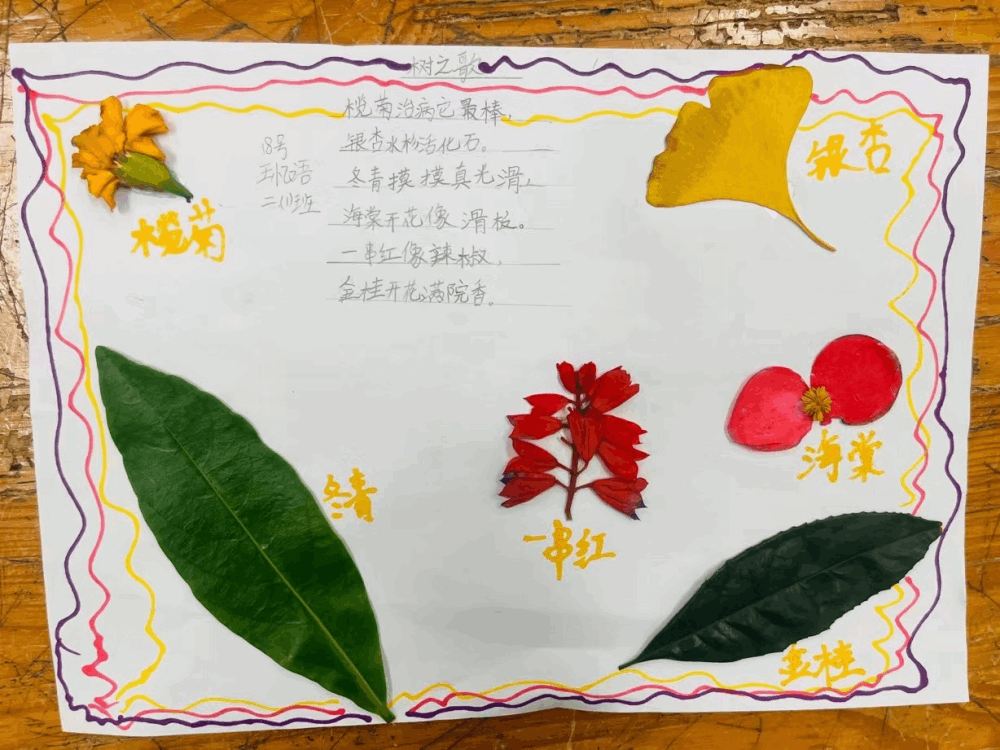 树之歌
榄菊治病它最棒，
银杏水杉活化石。
冬青摸摸真光滑，
海棠开花像滑板。
一串红像辣椒，
金桂开花满院香。
18号
王忆语
二（1）班
榄菊
银杏
冬青
一串红
海棠
金桂